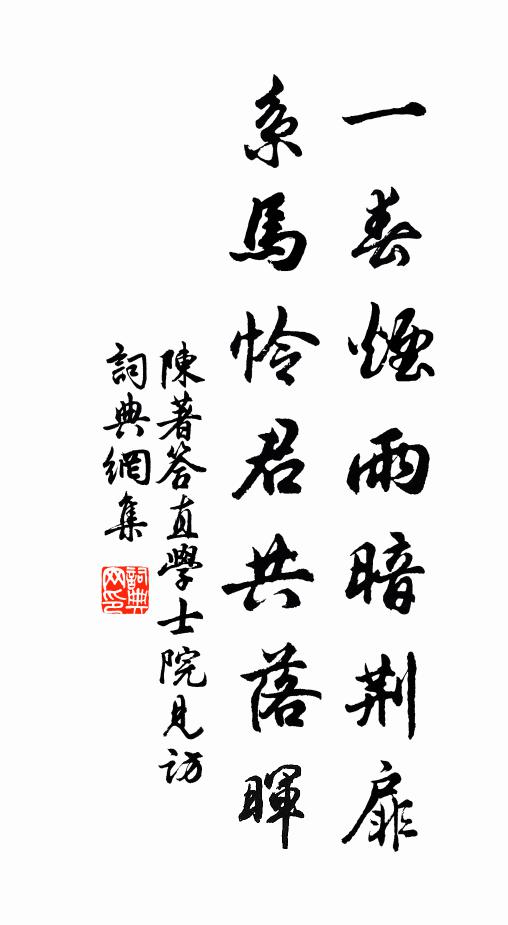 一春煙雨暗荆扉
系馬怜君共落暉
陳著答直學士院見訪
詞典網集
詞典网印